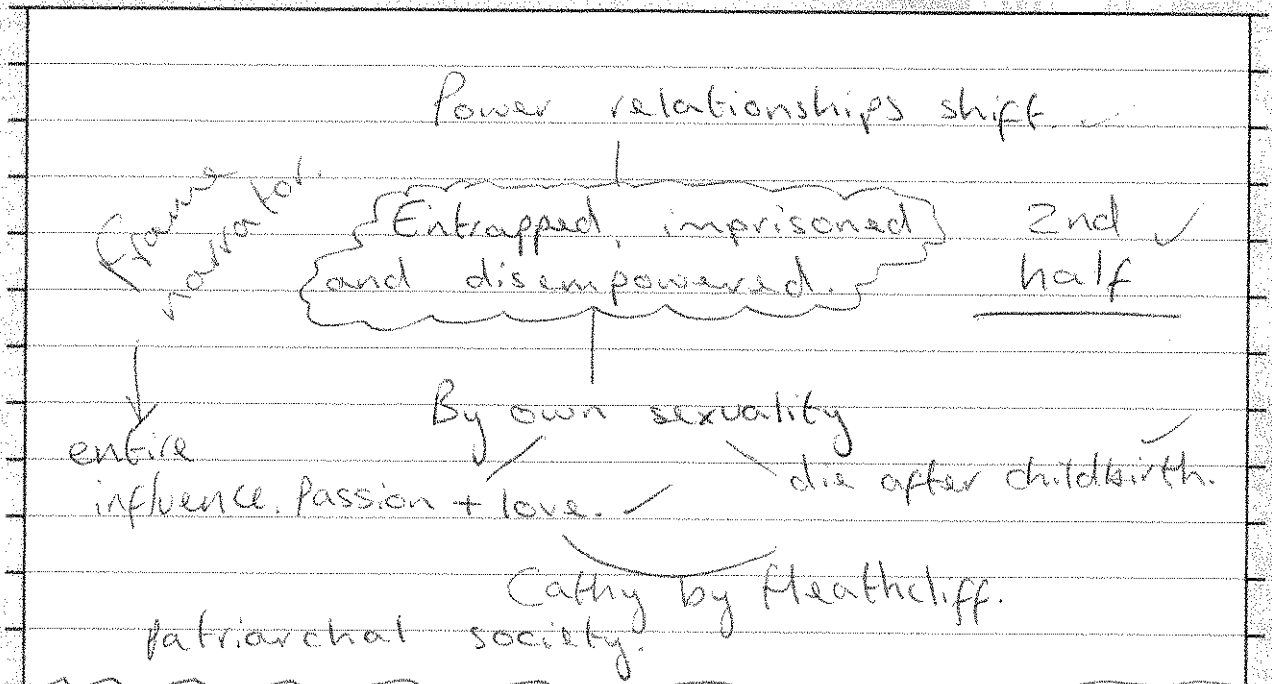 Power relationships shift.
frame
narrator.
Entrapped, imprisoned
and disempowered.
2nd
half
By own sexuality
entire
influence.
Passion + love.
die after childbirth.
Cathy by Heathcliff.
patriarchal society.